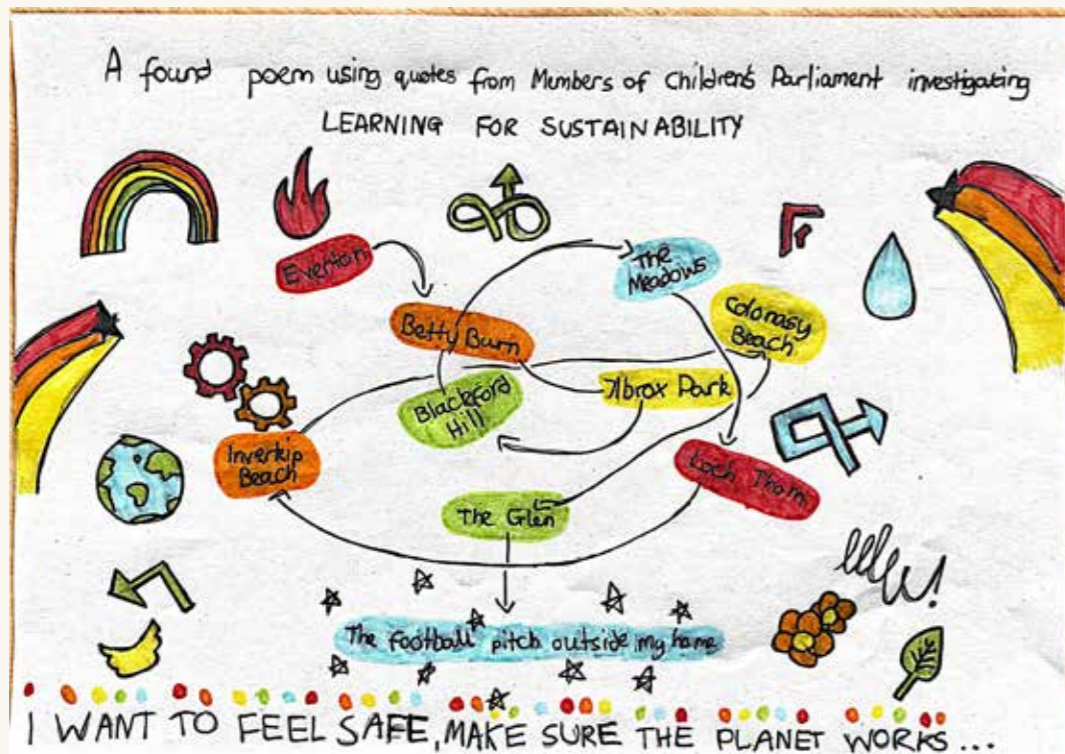 A found poem using quotes from Members of Children's Parliament investigating
LEARNING FOR SUSTAINABILITY
Everton
The
Meadows
Betty Burn
Colonasy
Beach
Blackford
Hill
Ibrox Park
Inverkip
Beach
Loch Thom
The Glen
The football pitch outside my home
I WANT TO FEEL SAFE, MAKE SURE THE PLANET WORKS...